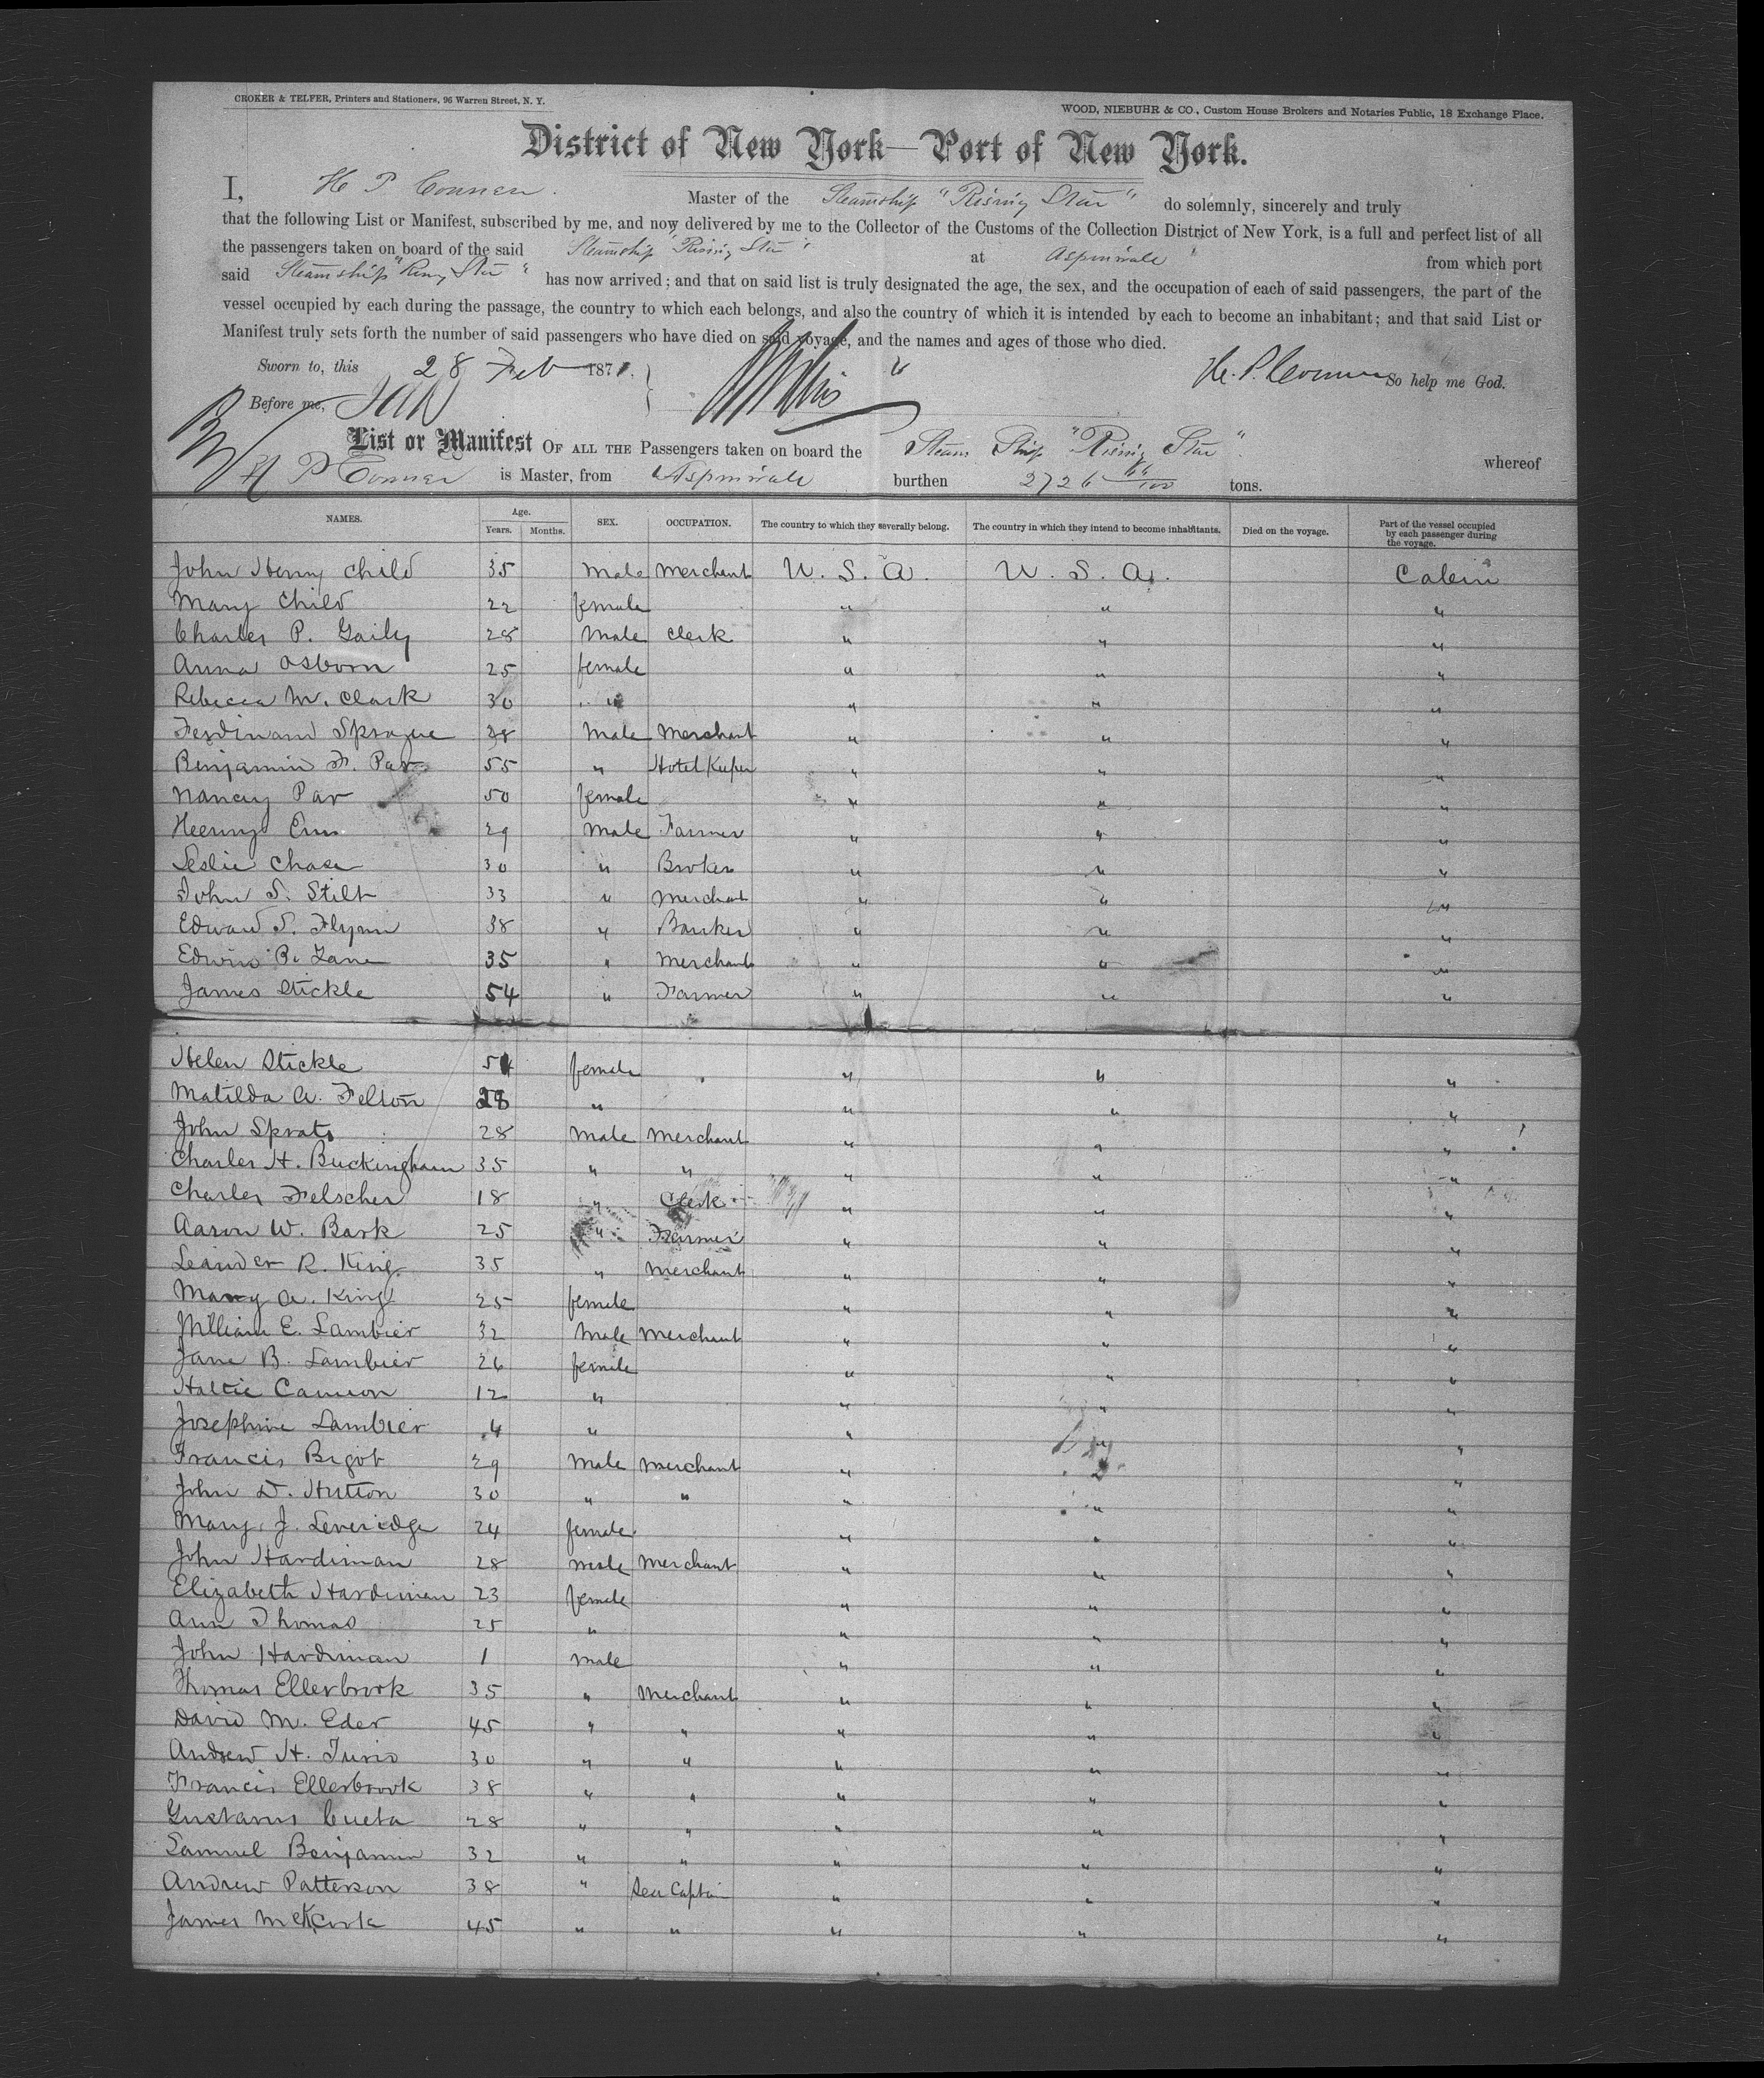 CROKER & TELFER, Printers and Stationers, 96 Warren Street, N. Y.
WOOD, NIEBUHR & CO., Custom House Brokers and Notaries Public, 18 Exchange Place.
District of New York—Port of New York.
I, H P Conner. Master of the Steamship "Rising Star" do solemnly, sincerely and truly
that the following List or Manifest, subscribed by me, and now delivered by me to the Collector of the Customs of the Collection District of New York, is a full and perfect list of all
the passengers taken on board of the said Steamship "Rising Star" at Aspinwall from which port
said Steamship "Rising Star" has now arrived; and that on said list is truly designated the age, the sex, and the occupation of each of said passengers, the part of the
vessel occupied by each during the passage, the country to which each belongs, and also the country of which it is intended by each to become an inhabitant; and that said List or
Manifest truly sets forth the number of said passengers who have died on said voyage, and the names and ages of those who died.
Sworn to, this 28 Feb 1871. H. P. Conner So help me God.
Before me,
List or Manifest OF ALL THE Passengers taken on board the Steam Ship "Rising Star" whereof
H P Conner is Master, from Aspinwall burthen 2726 tons.
NAMES. Age. Years. Months. SEX. OCCUPATION. The country to which they severally belong. The country in which they intend to become inhabitants. Died on the voyage. Part of the vessel occupied by each passenger during the voyage.
John Henry Child 35 Male Merchant U. S. A. U. S. A. Cabin
Mary Child 22 female " " "
Charles P. Gaily 28 Male Clerk " " "
Anna Osborn 25 female " " "
Rebecca M. Clark 30 " " " "
Ferdinand Sprague 38 Male Merchant " " "
Benjamin F. Par 55 " Hotel Keeper " " "
Nancy Par 50 female " " "
29 Male Farmer " " "
Leslie Chase 30 " Broker " " "
John S. Stilt 33 " Merchant " " "
Edward S. Flynn 38 " Banker " " "
Edwin R. Lane 35 " Merchant " " "
James Stickle 54 " Farmer " " "
Helen Stickle 54 female " " "
Matilda A. Felton 28 " " " "
John Sprats 28 Male Merchant " " "
Charles H. Buckingham 35 " " " " "
Charles Felscher 18 " Clerk " " "
Aaron W. Bark 25 " Farmer " " "
Leander R. King 35 " Merchant " " "
Mary A. King 25 female " " "
William E. Lambier 32 Male Merchant " " "
Jane B. Lambier 26 female " " "
Hattie Cameron 12 " " " "
Josephine Lambier 4 " " " "
Francis Bigot 29 Male Merchant " " "
John D. Hutton 30 " " " " "
Mary J. Leveridge 24 female " " "
John Hardiman 28 Male Merchant " " "
Elizabeth Hardiman 23 female " " "
Ann Thomas 25 " " " "
John Hardiman 1 Male " " "
Thomas Ellerbrook 35 " Merchant " " "
David M. Eder 45 " " " " "
Andrew H. 30 " " " " "
Francis Ellerbrook 38 " " " " "
Gustavus Cueta 28 " " " " "
Samuel Benjamin 32 " " " " "
Andrew Patterson 38 " Sea Captain " " "
James 45 " " " " "